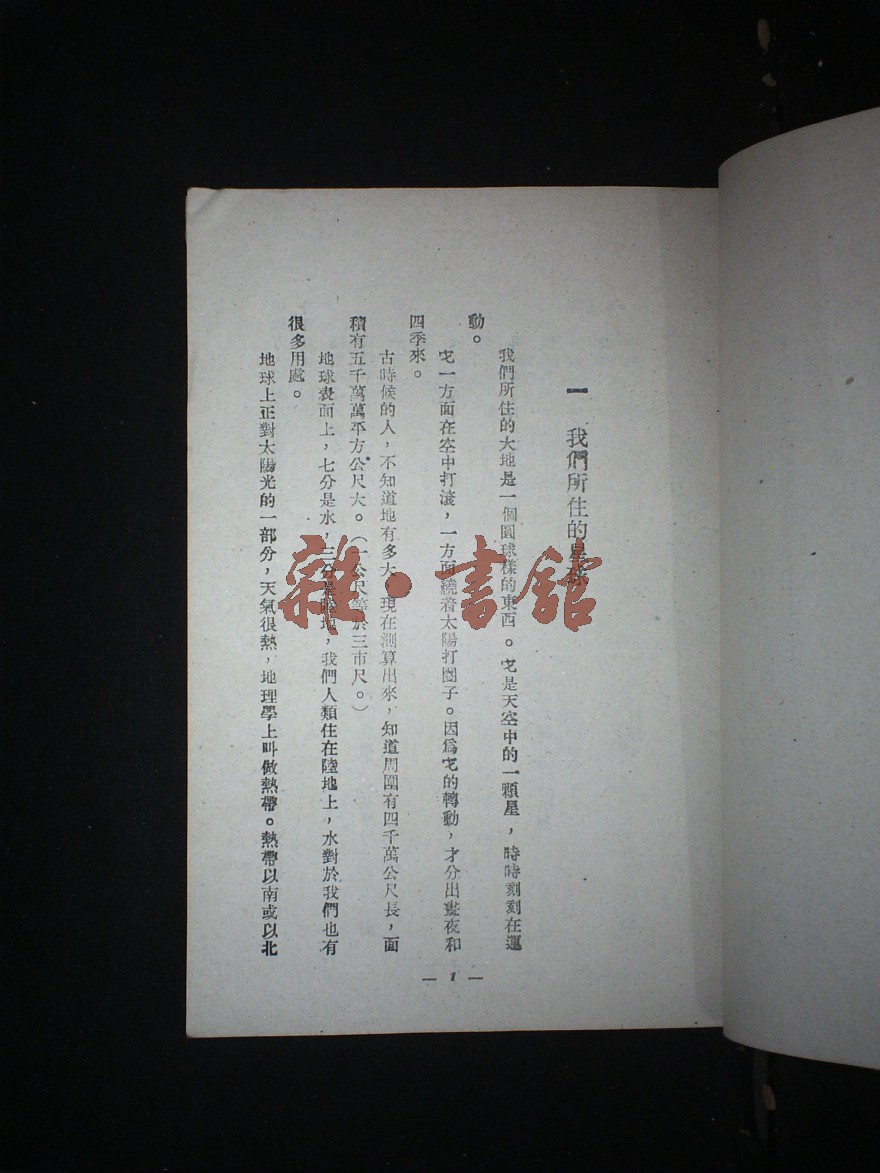 一　我們所住的星球
我們所住的大地是一個圓球樣的東西。它是天空中的一顆星，時時刻刻在運
動。
它一方面在空中打滾，一方面繞着太陽打圈子。因爲它的轉動，才分出晝夜和
四季來。
古時候的人，不知道地有多大，現在測算出來，知道周圍有四千萬公尺長，面
積有五千萬萬平方公尺大。（一公尺等於三市尺。）
地球表面上，七分是水，三分是陸地，我們人類住在陸地上，水對於我們也有
很多用處。
地球上正對太陽光的一部分，天氣很熱，地理學上叫做熱帶。熱帶以南或以北
— 1 —
雜·書館